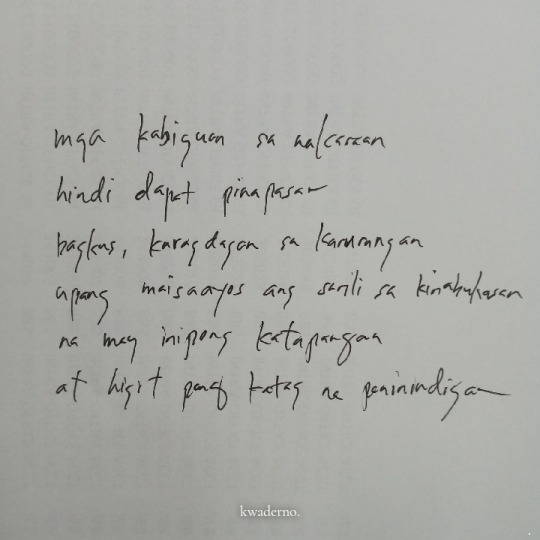 mga kabiguan sa nakaraan
hindi dapat pinapasan
bagkus, karagdagan sa karunungan
upang maisaayos ang sarili sa kinabukasan
na may inipong katapangan
at higit pang katag na paninindigan
kwaderno.